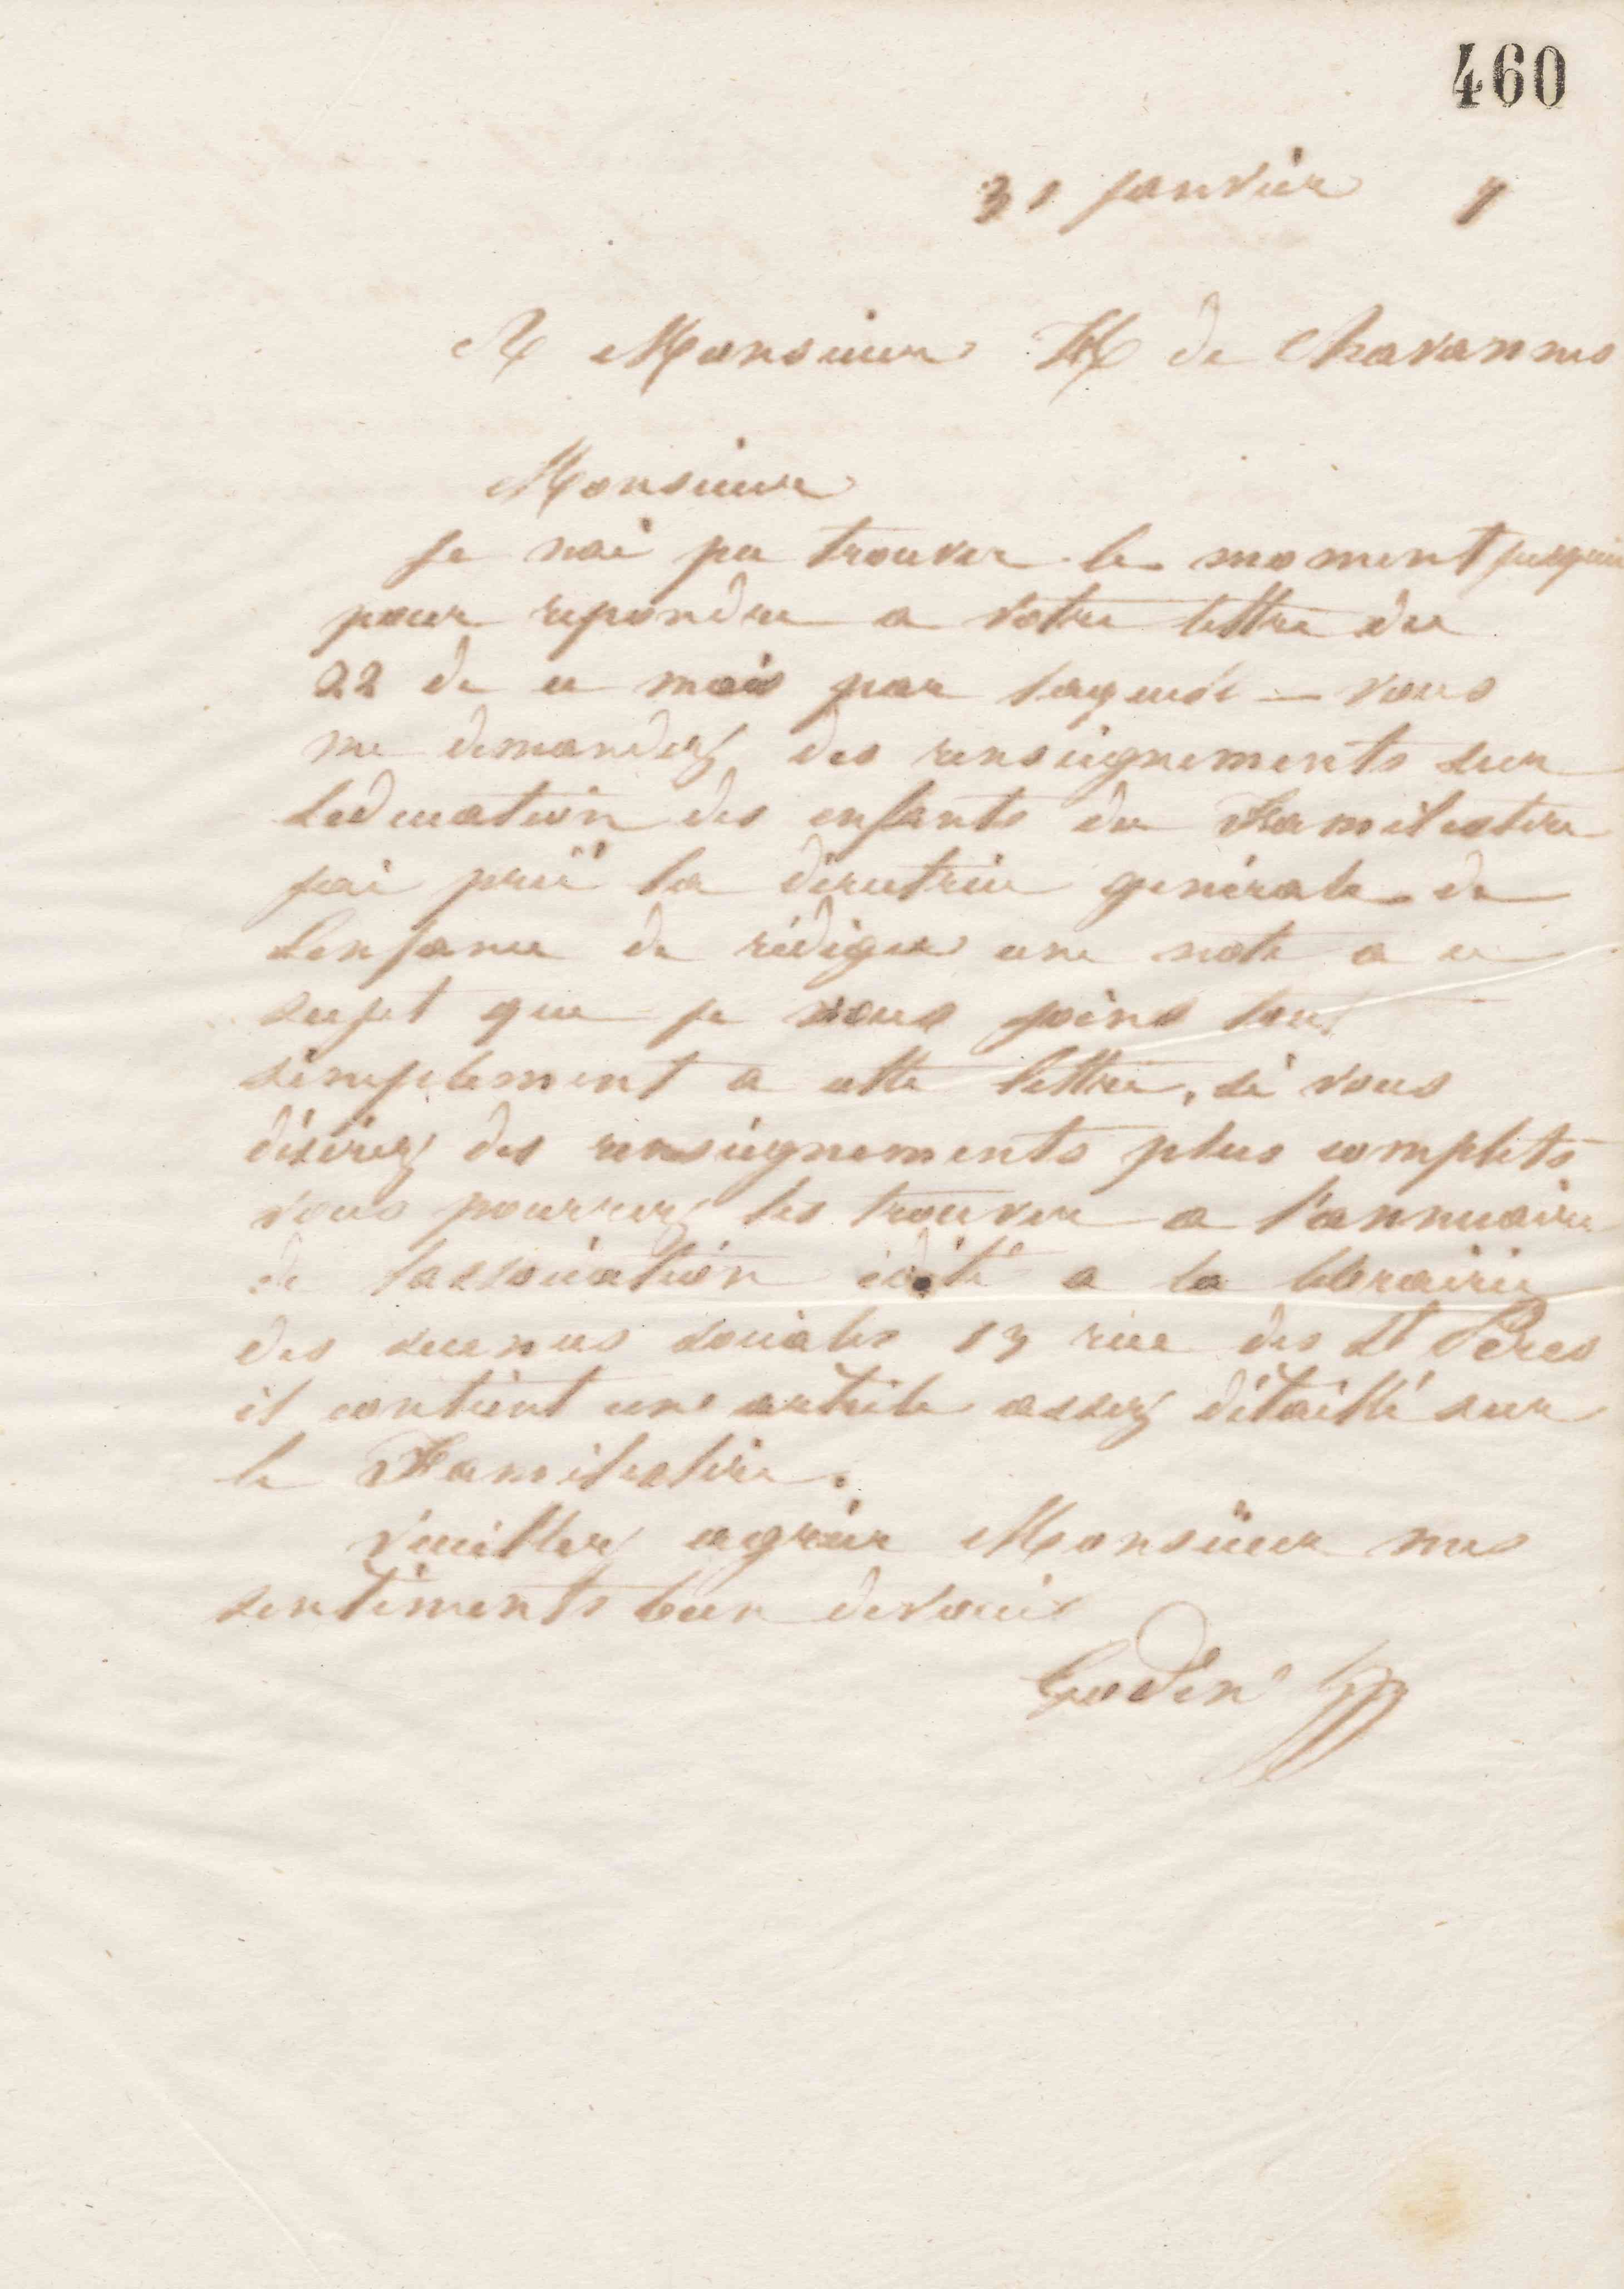 460
31 janvier 7
A Monsieur H de Chavannes
Monsieur
je nai pu trouver le moment jusquici
pour repondre a votre lettre du
22 de ce mois par laquele — vous
me demandez des renseignements sur
leducation des enfants du Familistere
jai prié la directrice génerale de
Lenfance de rédiger une note a ce
sujet que je vous joins tout
simplement a cette lettre, si vous
désirez des renseignements plus complets
vous pourrez les trouver a l'annuaire
de lassociation édité a la librairie
des sciences sociales 13 rue des St Pères
il contient une article assez détaillé sur
le Familistère.
Veuillez agréer Monsieur mes
sentiments bien devoués
Godin